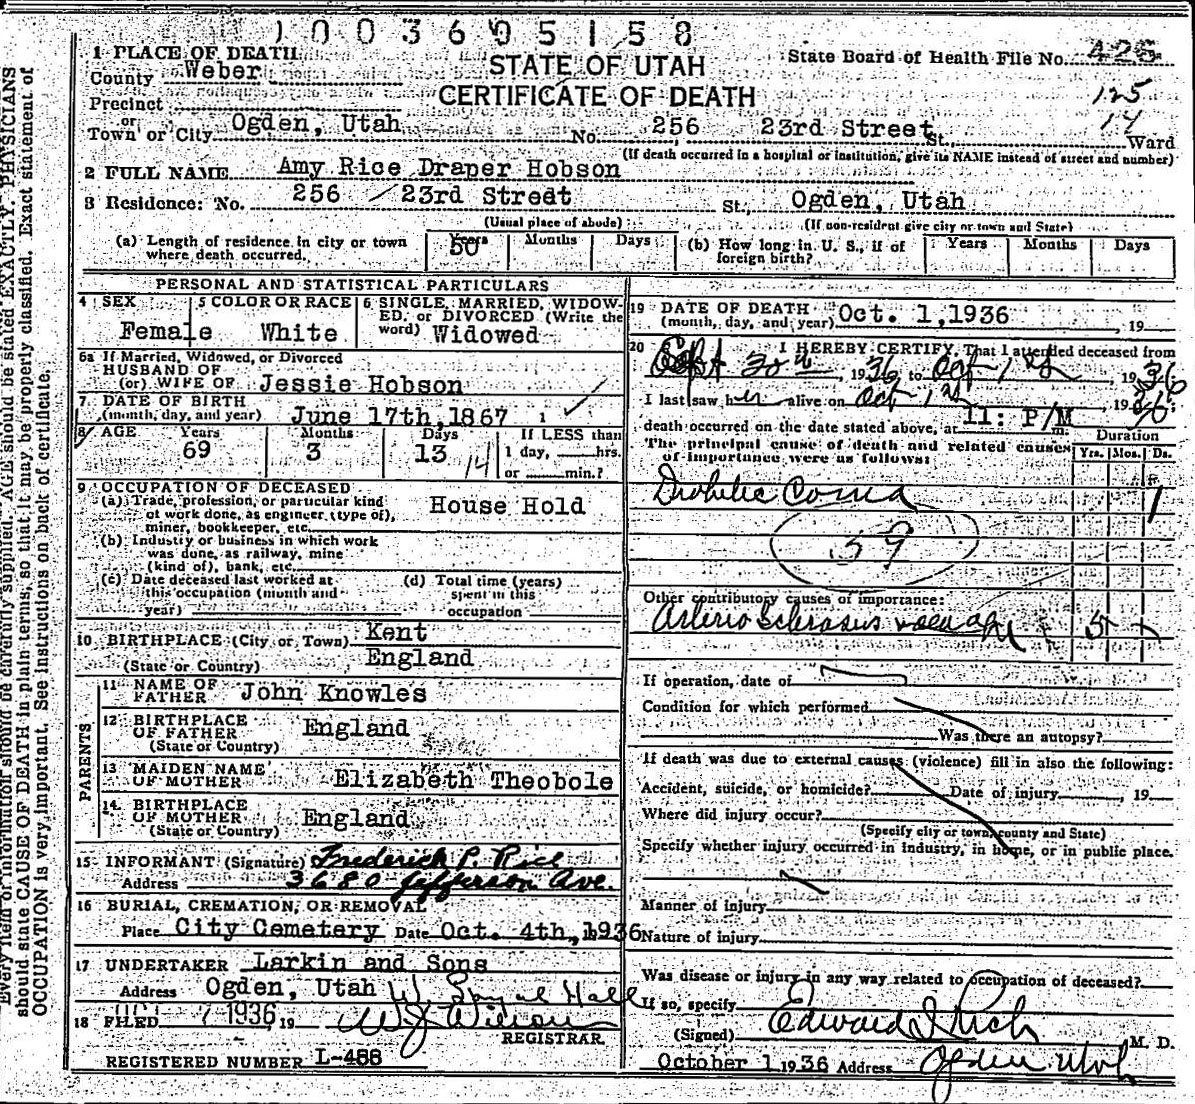 1003605158
1 PLACE OF DEATH
County Weber
STATE OF UTAH
CERTIFICATE OF DEATH
State Board of Health File No. 425
125
14
Precinct
or
Town or City Ogden, Utah No. 256 23rd Street St., Ward
(If death occurred in a hospital or institution, give its NAME instead of street and number)
2 FULL NAME Amy Rice Draper Hobson
3 Residence: No. 256 23rd Street St., Ogden, Utah
(Usual place of abode) (If non-resident give city or town and State)
(a) Length of residence in city or town where death occurred. 50 Years Months Days
(b) How long in U. S., if of foreign birth? Years Months Days
PERSONAL AND STATISTICAL PARTICULARS
4 SEX
Female
5 COLOR OR RACE
White
6 SINGLE, MARRIED, WIDOW-
ED, or DIVORCED (Write the
word) Widowed
6a If Married, Widowed, or Divorced
HUSBAND OF
(or) WIFE OF Jessie Hobson
7 DATE OF BIRTH
(month, day, and year) June 17th, 1867
8 AGE Years Months Days If LESS than
69 3 13 14 1 day, hrs.
or min.?
9 OCCUPATION OF DECEASED
(a) Trade, profession, or particular kind
of work done, as engineer (type of),
miner, bookkeeper, etc. House Hold
(b) Industry or business in which work
was done, as railway, mine
(kind of), bank, etc.
(c) Date deceased last worked at
this occupation (month and
year)
(d) Total time (years)
spent in this
occupation
10 BIRTHPLACE (City or Town) Kent
(State or Country) England
PARENTS
11 NAME OF
FATHER John Knowles
12 BIRTHPLACE
OF FATHER England
(State or Country)
13 MAIDEN NAME
OF MOTHER Elizabeth Theobole
14 BIRTHPLACE
OF MOTHER England
(State or Country)
15 INFORMANT (Signature) Frederick P. Rice
Address 3680 Jefferson Ave.
16 BURIAL, CREMATION, OR REMOVAL
Place City Cemetery Date Oct. 4th, 1936
17 UNDERTAKER Larkin and Sons
Address Ogden, Utah W. Hall
18 FILED OCT 7 1936, 19 W J Wilson
REGISTRAR
REGISTERED NUMBER L-488
19 DATE OF DEATH
(month, day, and year) Oct. 1, 1936, 19
20 I HEREBY CERTIFY, That I attended deceased from
Sept 30th, 1936 to Oct 1st, 1936
I last saw her alive on Oct 1st, 1936
death occurred on the date stated above, at 11: P/M m.
The principal cause of death and related causes
of importance were as follows:
Duration
Yrs. Mos. Ds.
Diabetic Coma 1
59
Other contributory causes of importance:
Arterio Sclerosis 5
If operation, date of
Condition for which performed
Was there an autopsy?
If death was due to external causes (violence) fill in also the following:
Accident, suicide, or homicide? Date of injury, 19
Where did injury occur?
(Specify city or town, county and State)
Specify whether injury occurred in industry, in home, or in public place.
Manner of injury
Nature of injury
Was disease or injury in any way related to occupation of deceased?
If so, specify
(Signed) Edward I Rich M. D.
October 1, 1936 Address Ogden Utah
should state CAUSE OF DEATH in plain terms, so that it may be properly classified. Exact statement of
OCCUPATION is very important. See instructions on back of certificate.